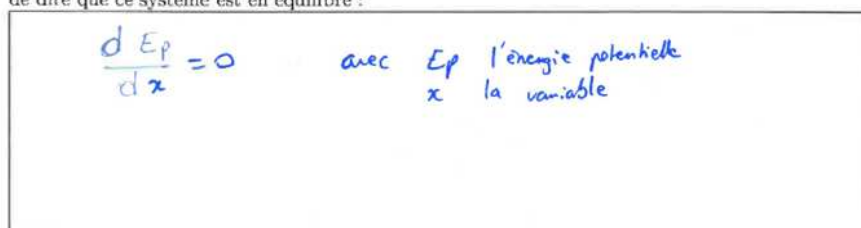 de dire que ce système est en équilibre :
d Ep / dx = 0 avec Ep l'énergie potentielle
x la variable